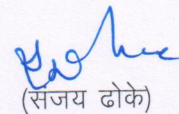 (संजय ढोके)